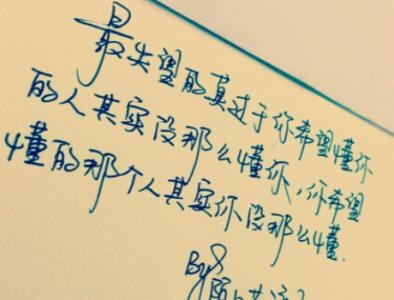 最失望的莫过于你希望懂你
的人其实没那么懂你,你希望
懂的那个人其实你没那么懂.
By